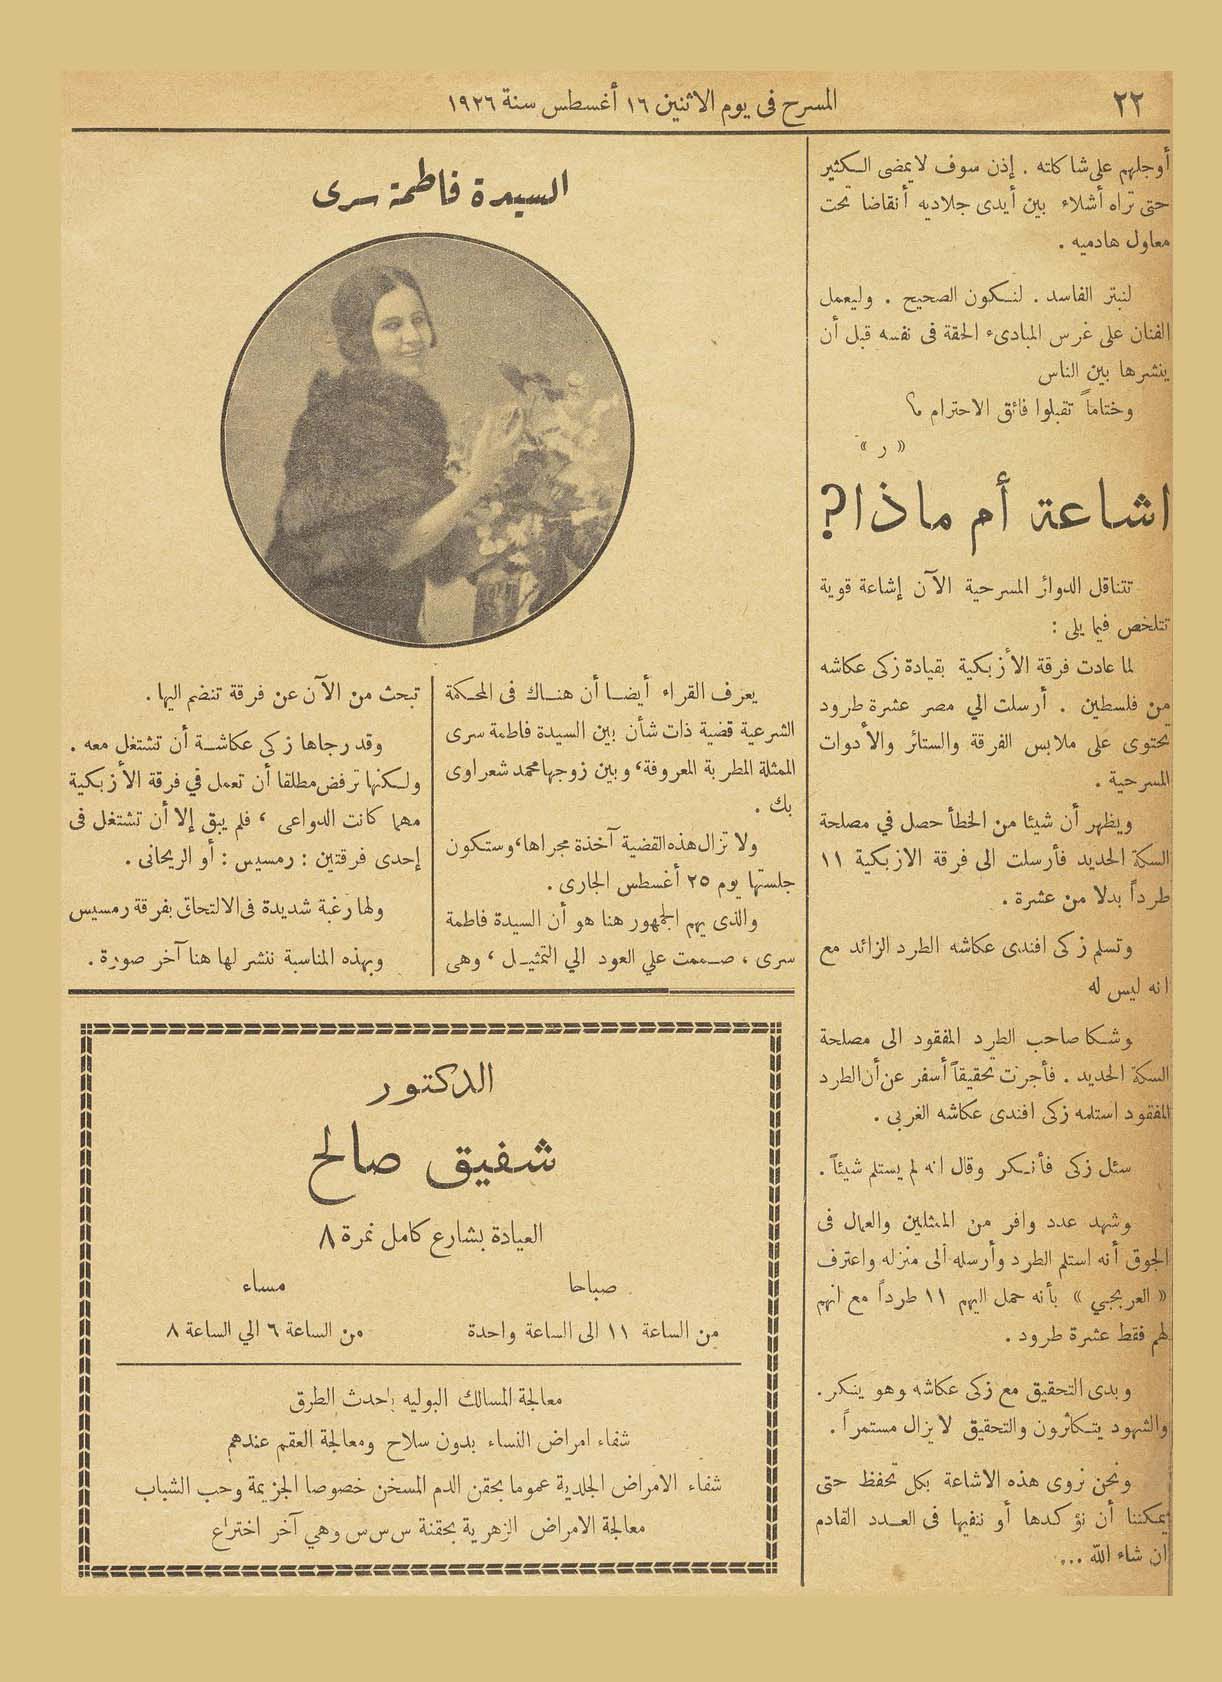 ٢٢
المسرح فى يوم الاثنين ١٦ أغسطس سنة ١٩٢٦
أوجلهم على شاكاته . إذن سوف لا يمضى الكثير
حتى تراه أشلاء بين أيدى جلاديه أنقاضا تحت
معاول هادميه .
لنبتر الفاسد . لنكون الصحيح . وليعمل
الفنان على غرس المبادىء الحقة فى نفسه قبل أن
ينشرها بين الناس
وختاماً تقبلوا فائق الاحترام م؟
« ر »
اشاعة أم ماذا؟
تتناقل الدوائر المسرحية الآن إشاعة قوية
تتلخص فيما يلى :
لما عادت فرقة الأزبكية بقيادة زكى عكاشه
من فلسطين . أرسلت الي مصر عشرة طرود
تحتوى على ملابس الفرقة والستائر والأدوات
المسرحية .
ويظهر أن شيئا من الخطأ حصل في مصلحة
السكة الحديد فأرسلت الى فرقة الازبكية ١١
طرداً بدلا من عشرة .
وتسلم زكى افندى عكاشه الطرد الزائد مع
انه ليس له
وشكا صاحب الطرد المفقود الى مصلحة
السكة الحديد . فأجرت تحقيقاً أسفر عن أن الطرد
المفقود استلمه زكى افندى عكاشه الغربى .
سئل زكى فأنكر وقال انه لم يستلم شيئاً .
وشهد عدد وافر من الممثلين والعمال فى
الجوق أنه استلم الطرد وأرسله الى منزله واعترف
« العربجي » بأنه حمل اليهم ١١ طرداً مع انهم
لهم فقط عشرة طرود .
وبدى التحقيق مع زكى عكاشه وهو ينكر .
والشهود يتكاثرون والتحقيق لا يزال مستمراً .
ونحن نروى هذه الاشاعة بكل تحفظ حتى
يمكننا أن نؤكدها أو ننفيها فى العدد القادم
ان شاء الله ...
السيدة فاطمة سرى
يعرف القراء أيضا أن هناك فى المحكمة
الشرعية قضية ذات شأن بين السيدة فاطمة سرى
الممثلة المطربة المعروفة، وبين زوجها محمد شعراوى
بك .
ولا تزال هذه القضية آخذة مجراها، وستكون
جلستها يوم ٢٥ أغسطس الجارى .
والذى يهم الجمهور هنا هو أن السيدة فاطمة
سرى ، صممت علي العود الي التمثيل ، وهى
تبحث من الآن عن فرقة تنضم اليها .
وقد رجاها زكى عكاشة أن تشتغل معه .
ولكنها ترفض مطلقا أن تعمل في فرقة الأزبكية
مهما كانت الدواعى ، فلم يبق إلا أن تشتغل فى
إحدى فرقتين : رمسيس : أو الريحانى .
ولها رغبة شديدة فى الالتحاق بفرقة رمسيس
وبهذه المناسبة ننشر لها هنا آخر صورة .
الدكتور
شفيق صالح
العيادة بشارع كامل نمرة ٨
صباحا مساء
من الساعة ١١ الى الساعة واحدة من الساعة ٦ الي الساعة ٨
معالجة المسالك البوليه باحدث الطرق
شفاء امراض النساء بدون سلاح ومعالجة العقم عندهم
شفاء الامراض الجلدية عموما بحقن الدم المسخن خصوصا الجزيمة وحب الشباب
معالجة الامراض الزهرية بحقنة س س س وهي آخر اختراع